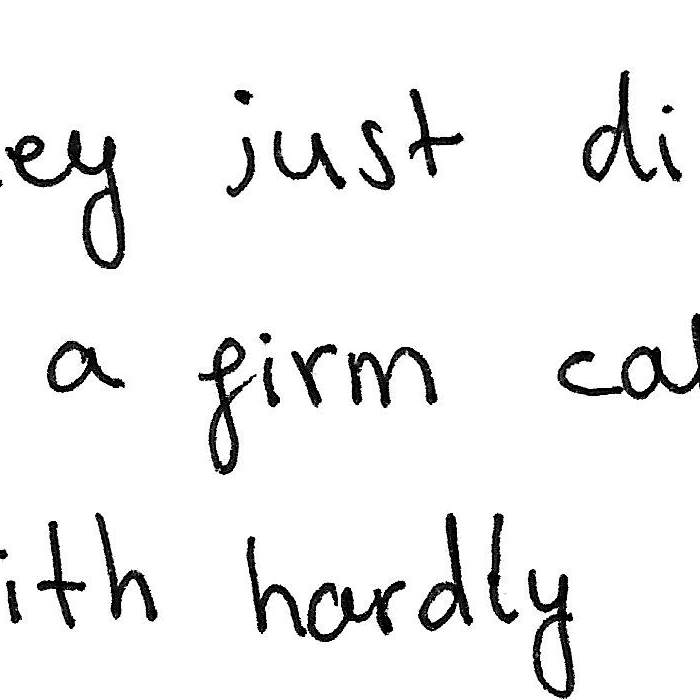 ey just di
a firm cal
ith hardly